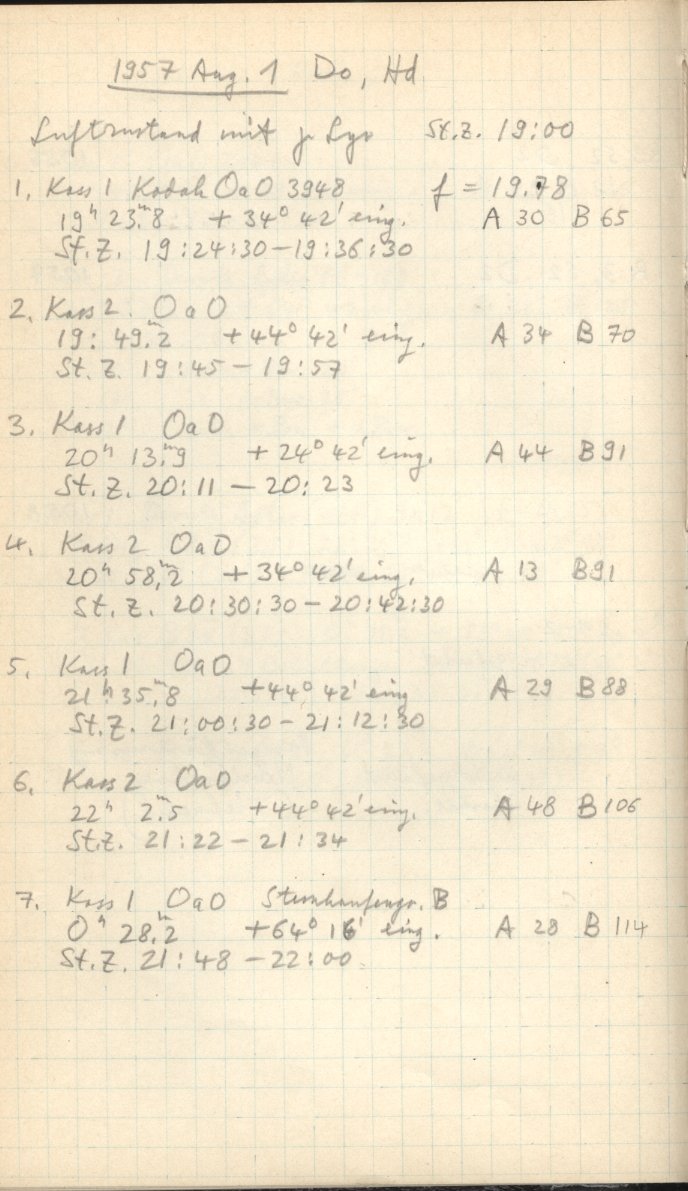 1957 Aug. 1 Do, Hd
Luftzustand mit γ Lyr St.Z. 19:00
1, Kass 1 Kodak OaO 3948 f = 19.78
19ʰ 23ᵐ.8 + 34° 42' eing. A 30 B 65
St.Z. 19:24:30 – 19:36:30
2. Kass 2. OaO
19: 49ᵐ.2 + 44° 42' eing. A 34 B 70
St. Z. 19:45 – 19:57
3. Kass 1 OaO
20ʰ 13ᵐ.9 + 24° 42' eing. A 44 B 91
St. Z. 20:11 – 20:23
4. Kass 2 OaO
20ʰ 58ᵐ.2 + 34° 42' eing. A 13 B 91
St. Z. 20:30:30 – 20:42:30
5. Kass 1 OaO
21ʰ 35ᵐ.8 + 44° 42' eing A 29 B 88
St.Z. 21:00:30 – 21:12:30
6. Kass 2 OaO
22ʰ 2ᵐ.5 + 44° 42' eing. A 48 B 106
St.Z. 21:22 – 21:34
7. Kass 1 OaO Sternhaufengr. B
0ʰ 28ᵐ.2 + 64° 16' eing. A 28 B 114
St.Z. 21:48 – 22:00